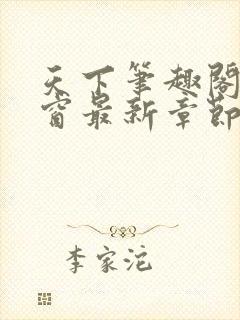 天下筆趣閣
窗最新章節
李家沱